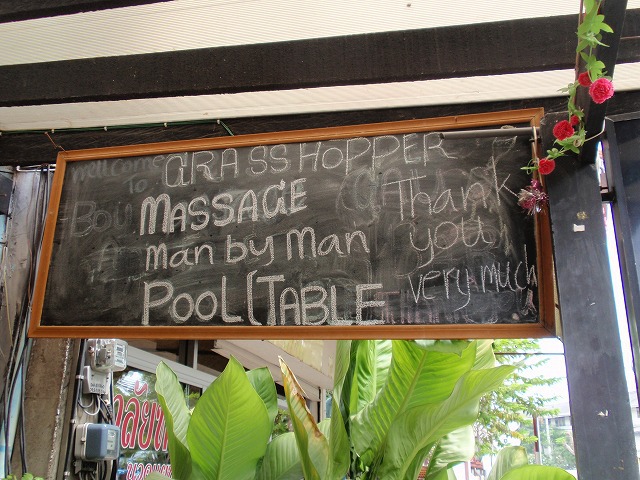 welcome
To
GRASSHOPPER
MASSAGE
man by man
POOL (TABLE
Thank
you
very much